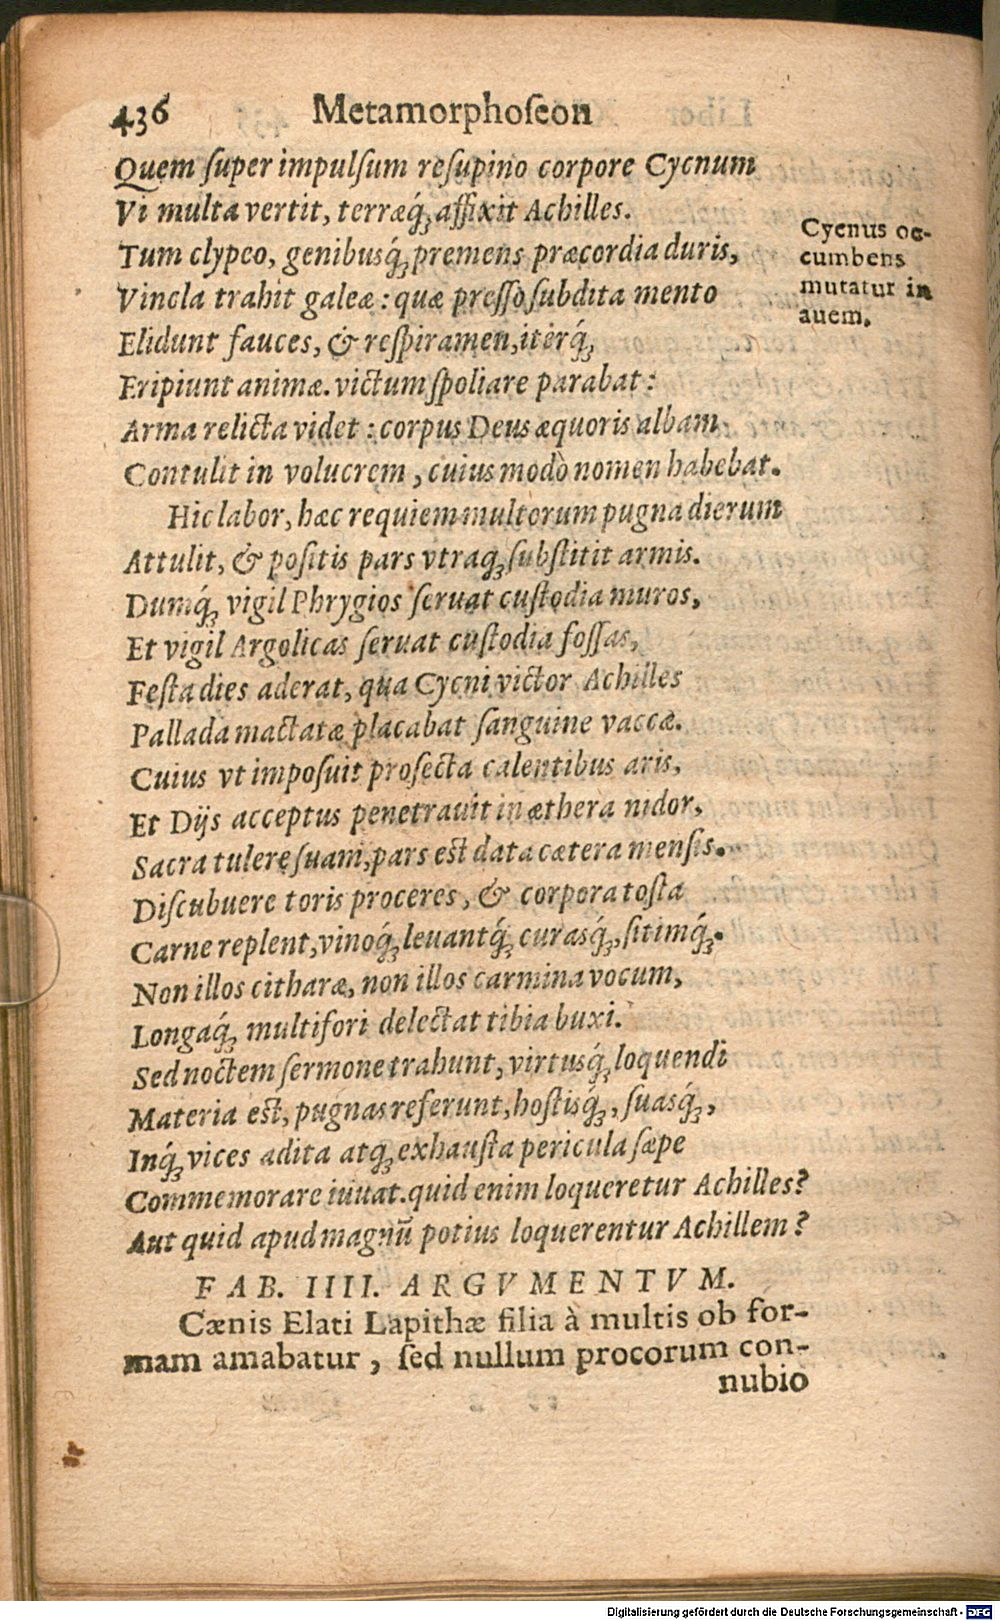 436 Metamorphoſeon
Quem ſuper impulſum reſupino corpore Cycnum
Vi multa vertit, terræq́; affixit Achilles.
Tum clypeo, genibusq́; premens præcordia duris,
Vincla trahit galeæ: quæ preſſo ſubdita mento
Elidunt fauces, & reſpiramen, iterq́;
Eripiunt animæ. victum ſpoliare parabat:
Arma relicta videt: corpus Deus æquoris albam
Contulit in volucrem, cuius modò nomen habebat.
Cycnus oc-
cumbens
mutatur in
auem.
Hic labor, hæc requiem multorum pugna dierum
Attulit, & poſitis pars vtraq; ſubſtitit armis.
Dumq́; vigil Phrygios ſeruat cuſtodia muros,
Et vigil Argolicas ſeruat cuſtodia foſſas,
Feſta dies aderat, qua Cycni victor Achilles
Pallada mactatæ placabat ſanguine vaccæ.
Cuius vt impoſuit proſecta calentibus aris,
Et Dijs acceptus penetrauit in æthera nidor,
Sacra tulere ſuam, pars eſt data cætera menſis.
Diſcubuere toris proceres, & corpora toſta
Carne replent, vinoq́; leuantq́; curasq́;, ſitimq́;.
Non illos citharæ, non illos carmina vocum,
Longaq́; multifori delectat tibia buxi.
Sed noctem ſermone trahunt, virtusq́; loquendi
Materia eſt, pugnas referunt, hoſtisq́;, ſuasq́;,
Inq́; vices adita atq; exhauſta pericula ſæpe
Commemorare iuuat. quid enim loqueretur Achilles?
Aut quid apud magnū potius loquerentur Achillem?
FAB. IIII. ARGVMENTVM.
Cænis Elati Lapithæ filia à multis ob for-
mam amabatur, ſed nullum procorum con-
nubio
Digitalisierung gefördert durch die Deutsche Forschungsgemeinschaft - DFG